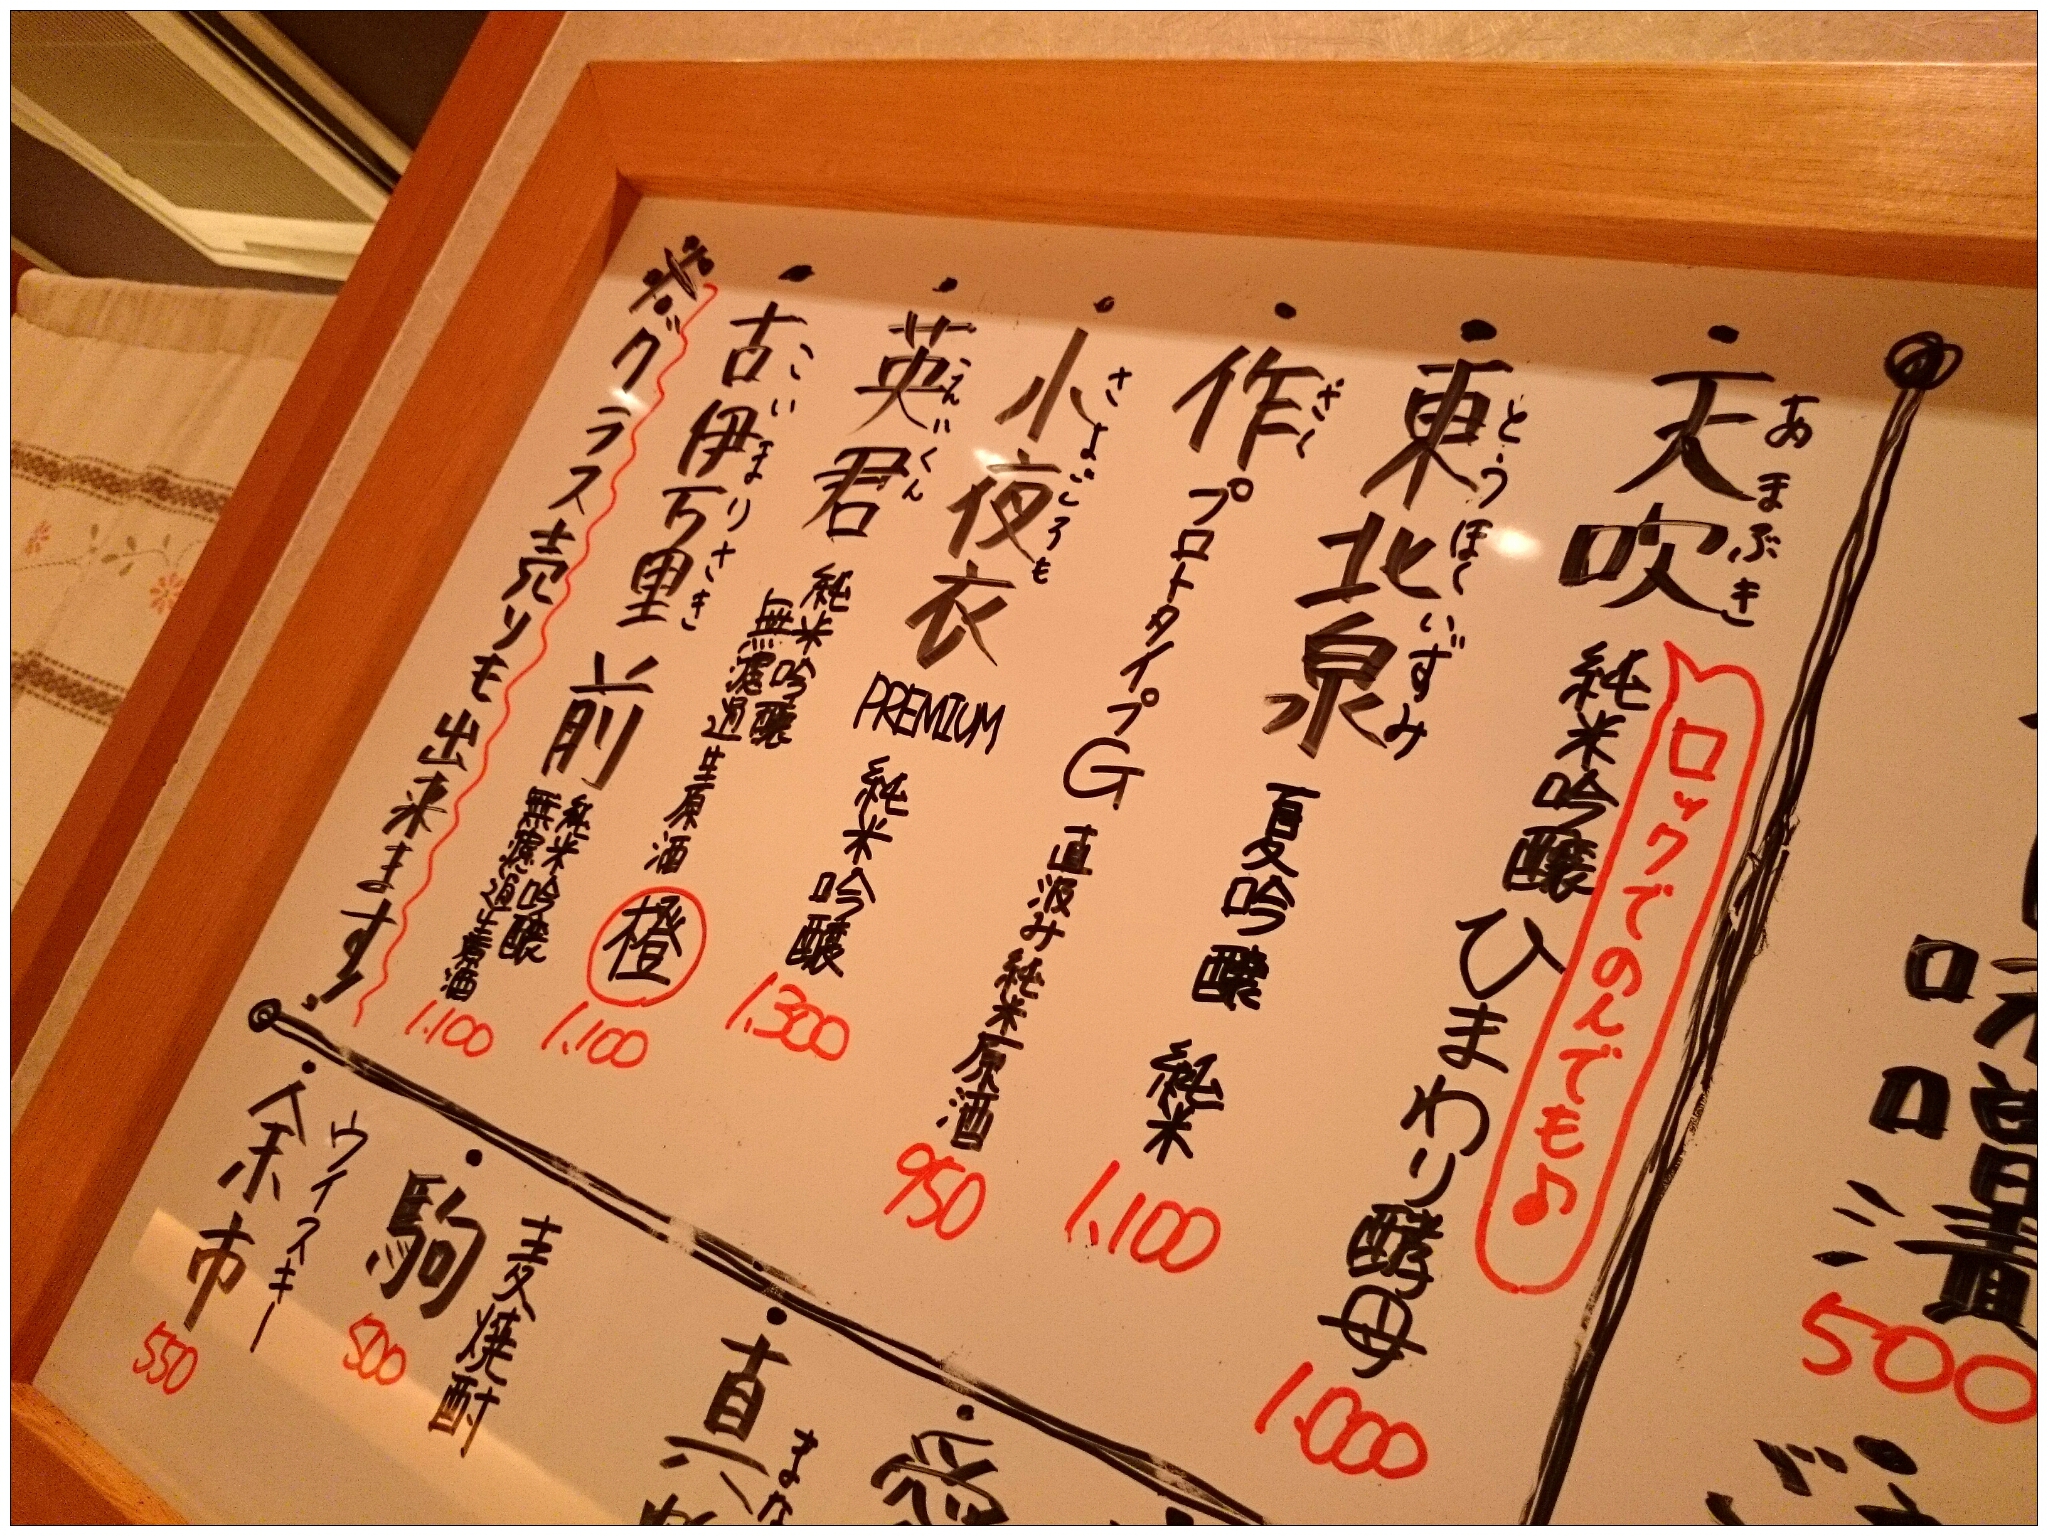 味噌漬
500
天吹 あまぶき 純米吟醸 ひまわり酵母 1.000
ロックでのんでも♪
東北泉 とうほくいずみ 夏吟醸 純米 1.100
作 ざく プロトタイプG 直汲み純米原酒 950
小夜衣 さよごろも PREMIUM 純米吟醸 1.300
英君 えいくん 純米吟醸 無濾過生原酒 橙 1.100
古伊万里 こいまりさき 前 純米吟醸 無濾過生原酒 1.100
※グラス売りも出来ます
愛
真
麦焼酎
駒 500
ウイスキー
余市 550